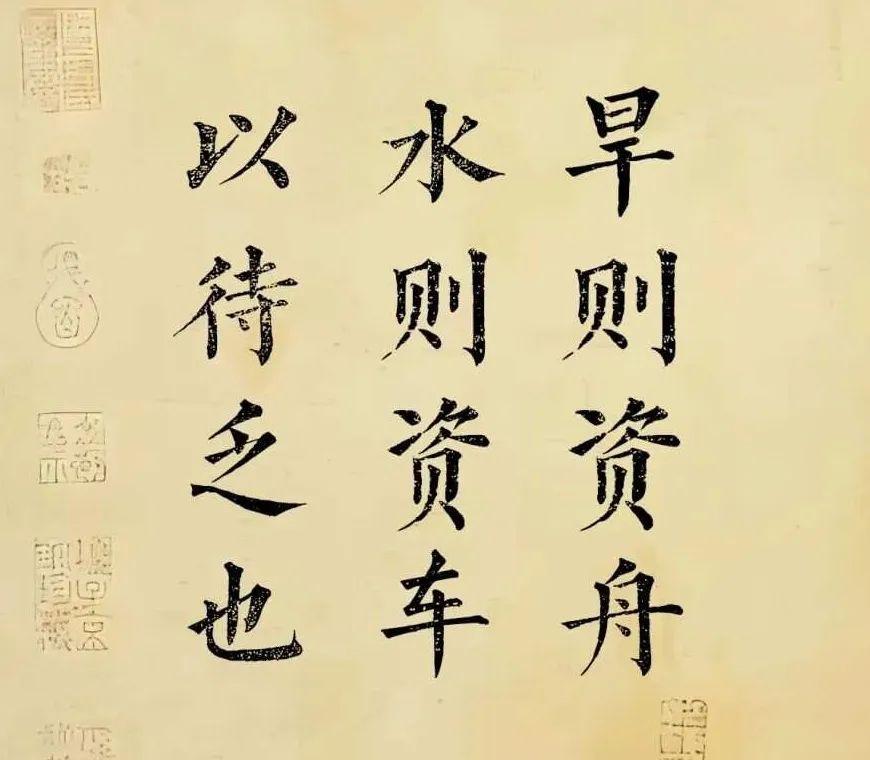 旱则资舟
水则资车
以待乏也